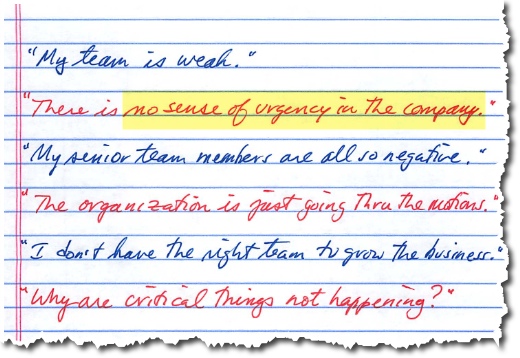 "My team is weak."
"There is no sense of urgency in the company."
"My senior team members are all so negative."
"The organization is just going thru the motions."
"I don't have the right team to grow the business."
"Why are critical things not happening?"